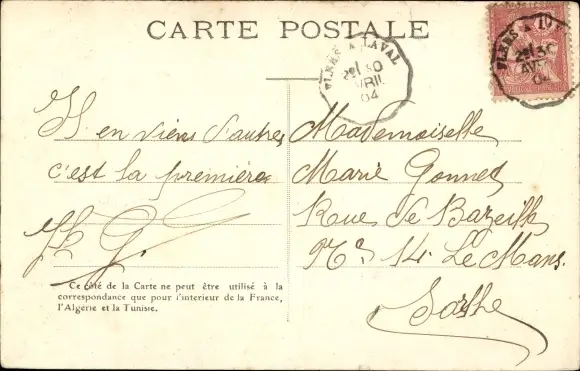 CARTE POSTALE
FLERS A LAVAL
2º/30
AVRIL
04
FLERS A
2º/30
AVR
04
Il en viens d'autres
c'est la première
Mademoiselle
Marie Gonnet
Rue de Bazeille
Nº 14. Le Mans.
Sarthe
Ce côté de la Carte ne peut être utilisé à la
correspondance que pour l'interieur de la France,
l'Algerie et la Tunisie.